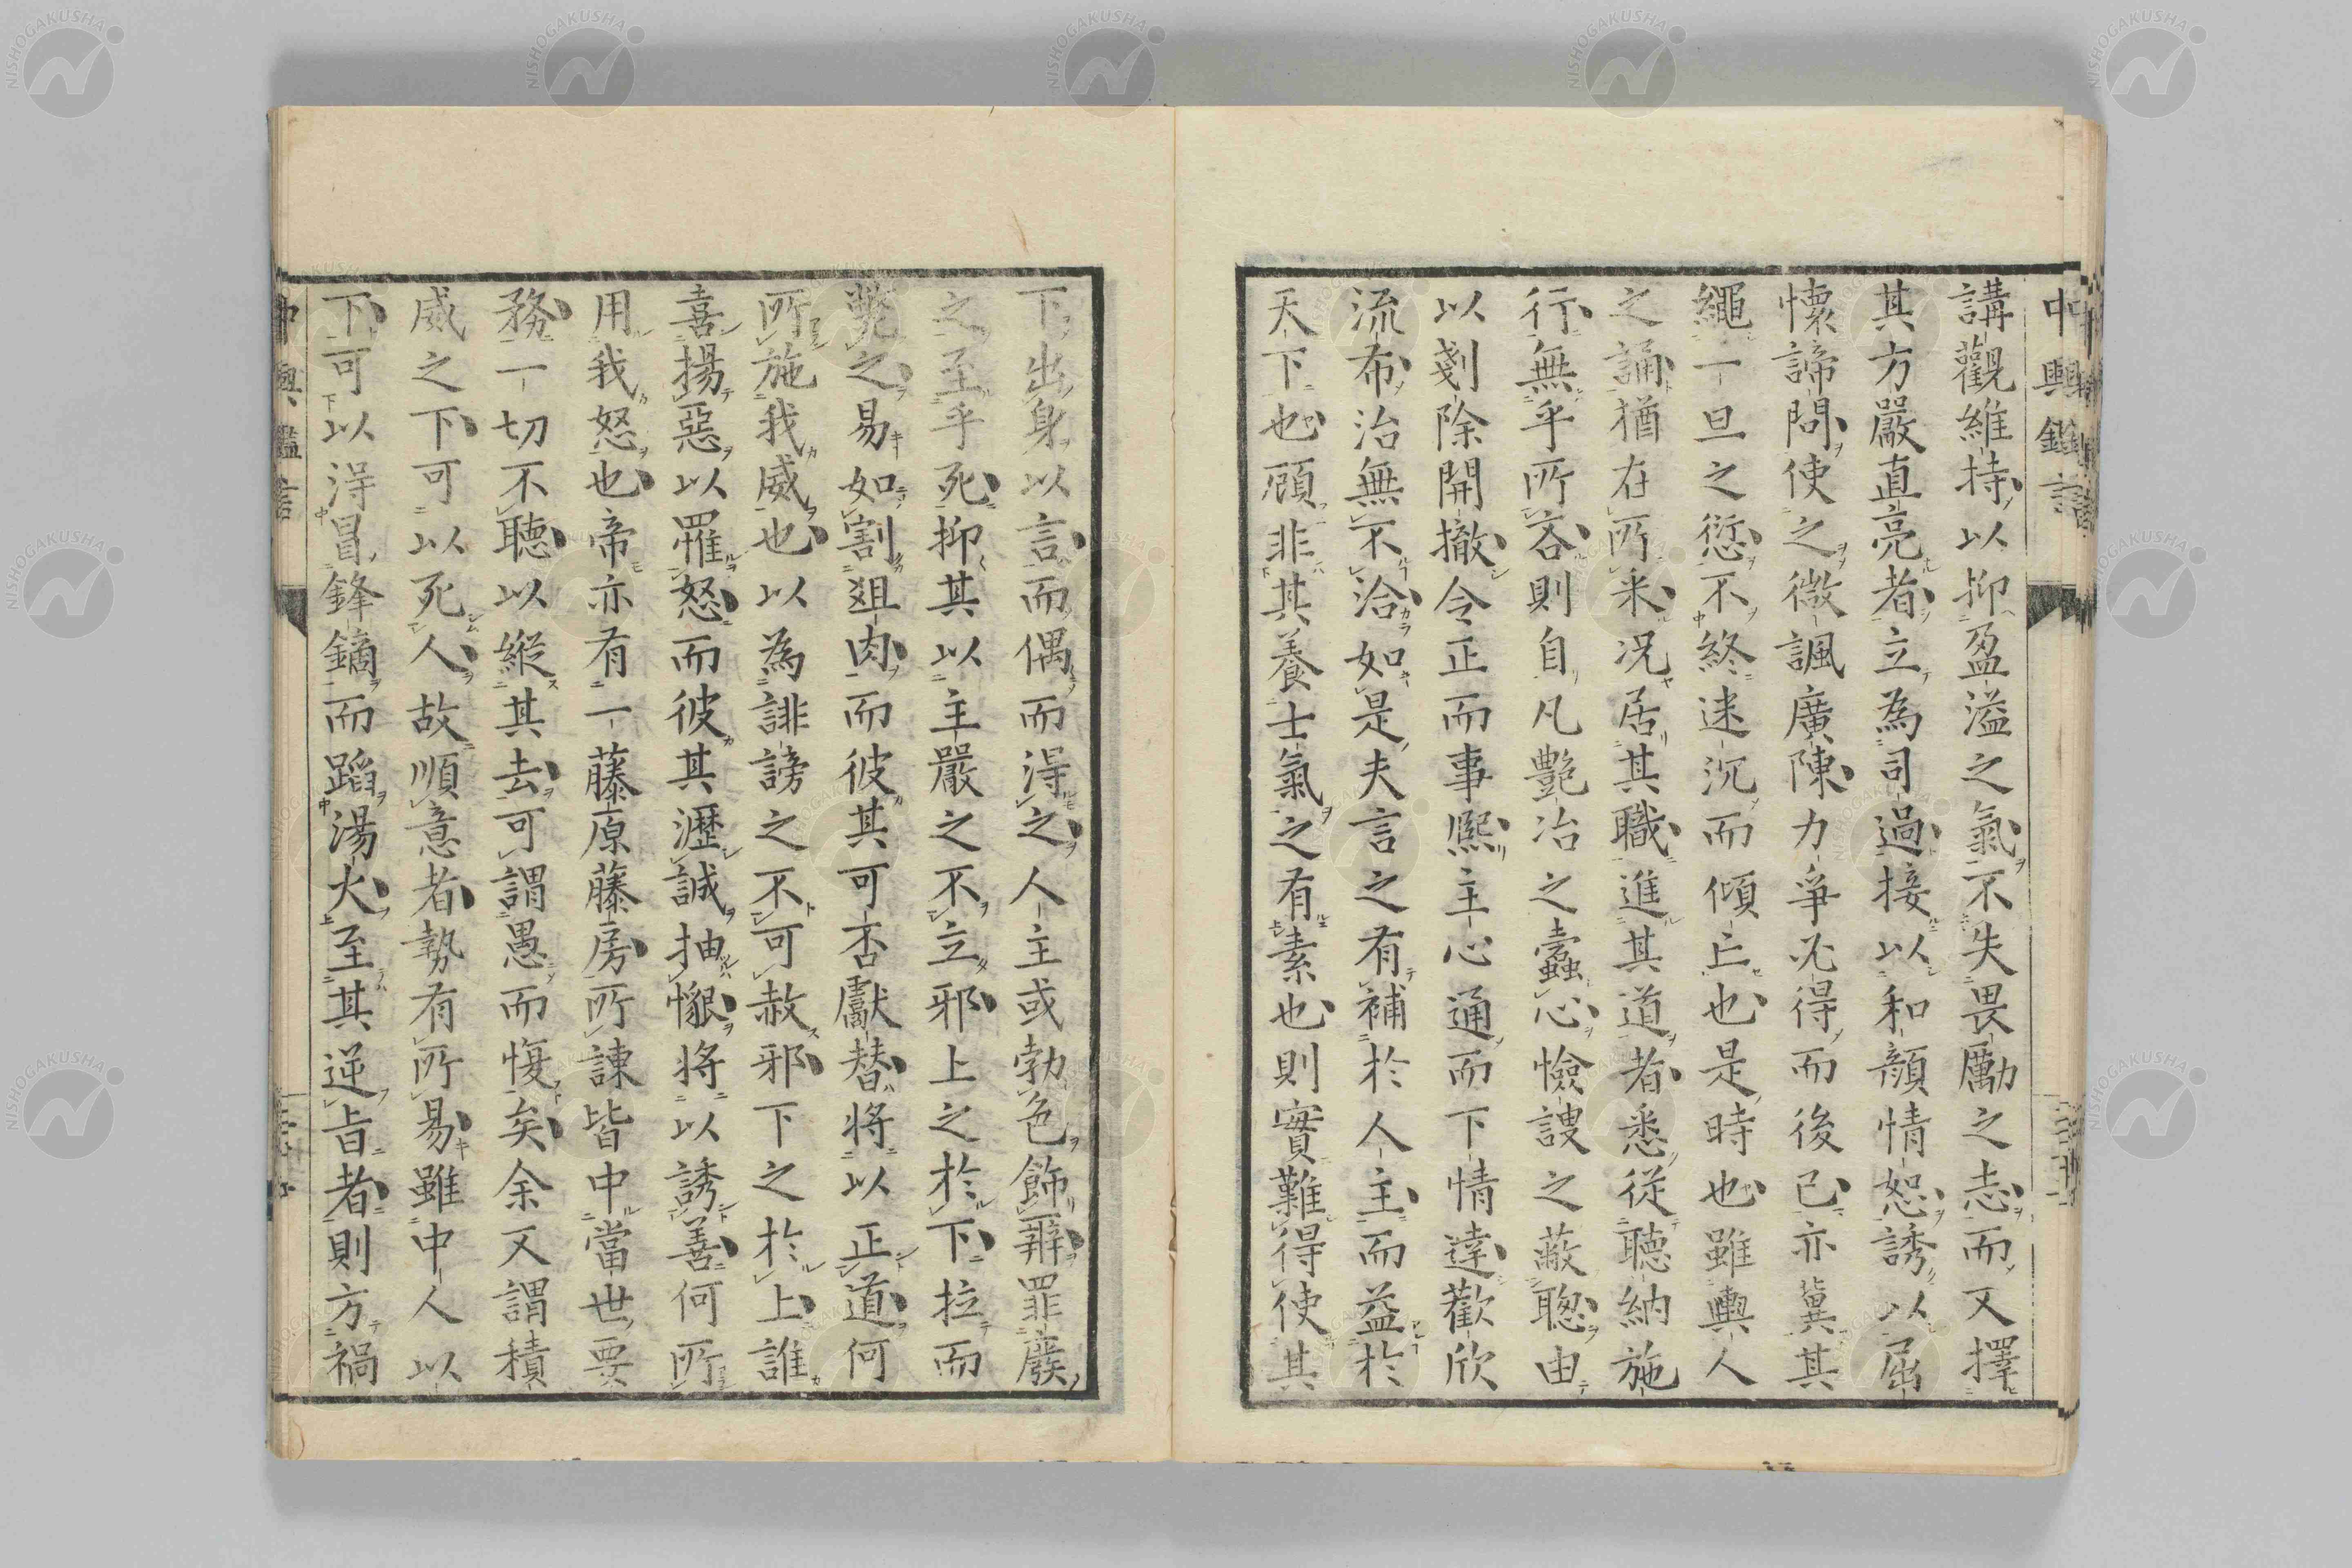 中興鑑言
講觀維持以抑盈溢之氣不失畏勵之志而又擇
其方嚴直亮者立為司過接以和顏情恕誘以屈
懷諦問使之微諷廣陳力爭必得而後已亦冀其
繩一旦之愆不終迷沉而傾亡也是時也雖輿人
之誦猶在所采況居其職進其道者悉從聽納施
行無乎所吝則自凡艷冶之蠹心憸謏之蔽聰由
以剗除開撤令正而事熙主心通而下情達歡欣
流布治無不洽如是夫言之有補於人主而益於
天下也顧非其養士氣之有素也則實難得使其
下出身以言而偶而淂之人主或勃色飾辭罪廢
之至乎死抑其以主嚴之不立邪上之於下拉而
斃之易如割俎肉而彼其可否獻替將以正道何
所施我威也以為誹謗之不可赦邪下之於上誰
喜揚惡以罹怒而彼其瀝誠抽懇將以誘善何所
用我怒也帝亦有一藤原藤房所諫皆中當世要
務一切不聽以縱其去可謂愚而愎矣余又謂積
威之下可以死人故順意者勢有所易雖中人以
下可以淂冒鋒鏑而蹈湯火至其逆旨者則方禍
中興鑑言